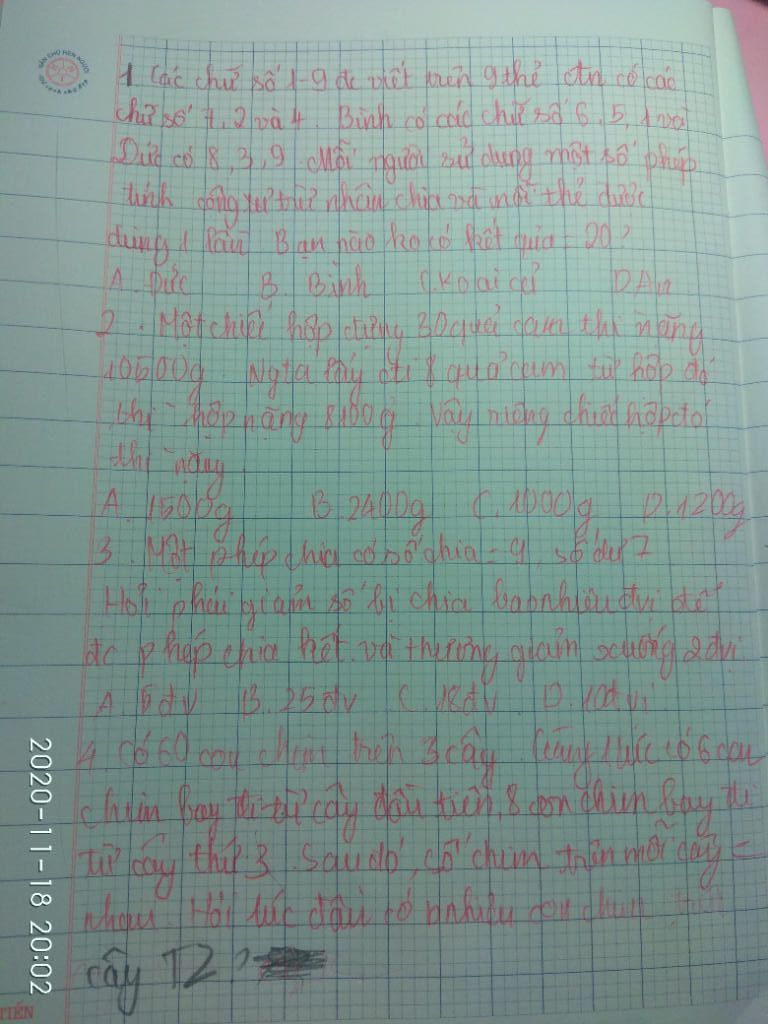 1 Các chữ số 1-9 đc viết trên 9 thẻ An có các
chữ số 7, 2 và 4. Bình có các chữ số 6, 5, 1 và
Đức có 8, 3, 9. Mỗi người sử dụng một số phép
tính cộng trừ nhân chia và mỗi thẻ được
dùng 1 lần Bạn nào ko có kết quả = 20?
A. Đức B. Bình C. Ko ai cả D An
2. Một chiếc hộp đựng 30 quả cam thì nặng
10500g. Ngta lấy đi 8 quả cam từ hộp đó
thì hộp nặng 8100g. Vậy riêng chiếc hộp đó
thì nặng
A. 1500g B. 2400g C. 1000g D. 1200g
3. Một phép chia có số chia = 9, số dư 7
Hỏi phải giảm số bị chia bao nhiêu đvị để
đc phép chia hết và thương giảm xuống 2 đvị
A. 5 đv B. 25 đv C. 18 đv D. 10 đvị
4. Có 60 con chim trên 3 cây. Cùng 1 lúc có 6 con
chim bay đi từ cây đầu tiên, 8 con chim bay đi
từ cây thứ 3. Sau đó, số chim trên mỗi cây =
nhau. Hỏi lúc đầu có nhiêu con chim trên
cây T2?
2020-11-18 20:02
TIẾN